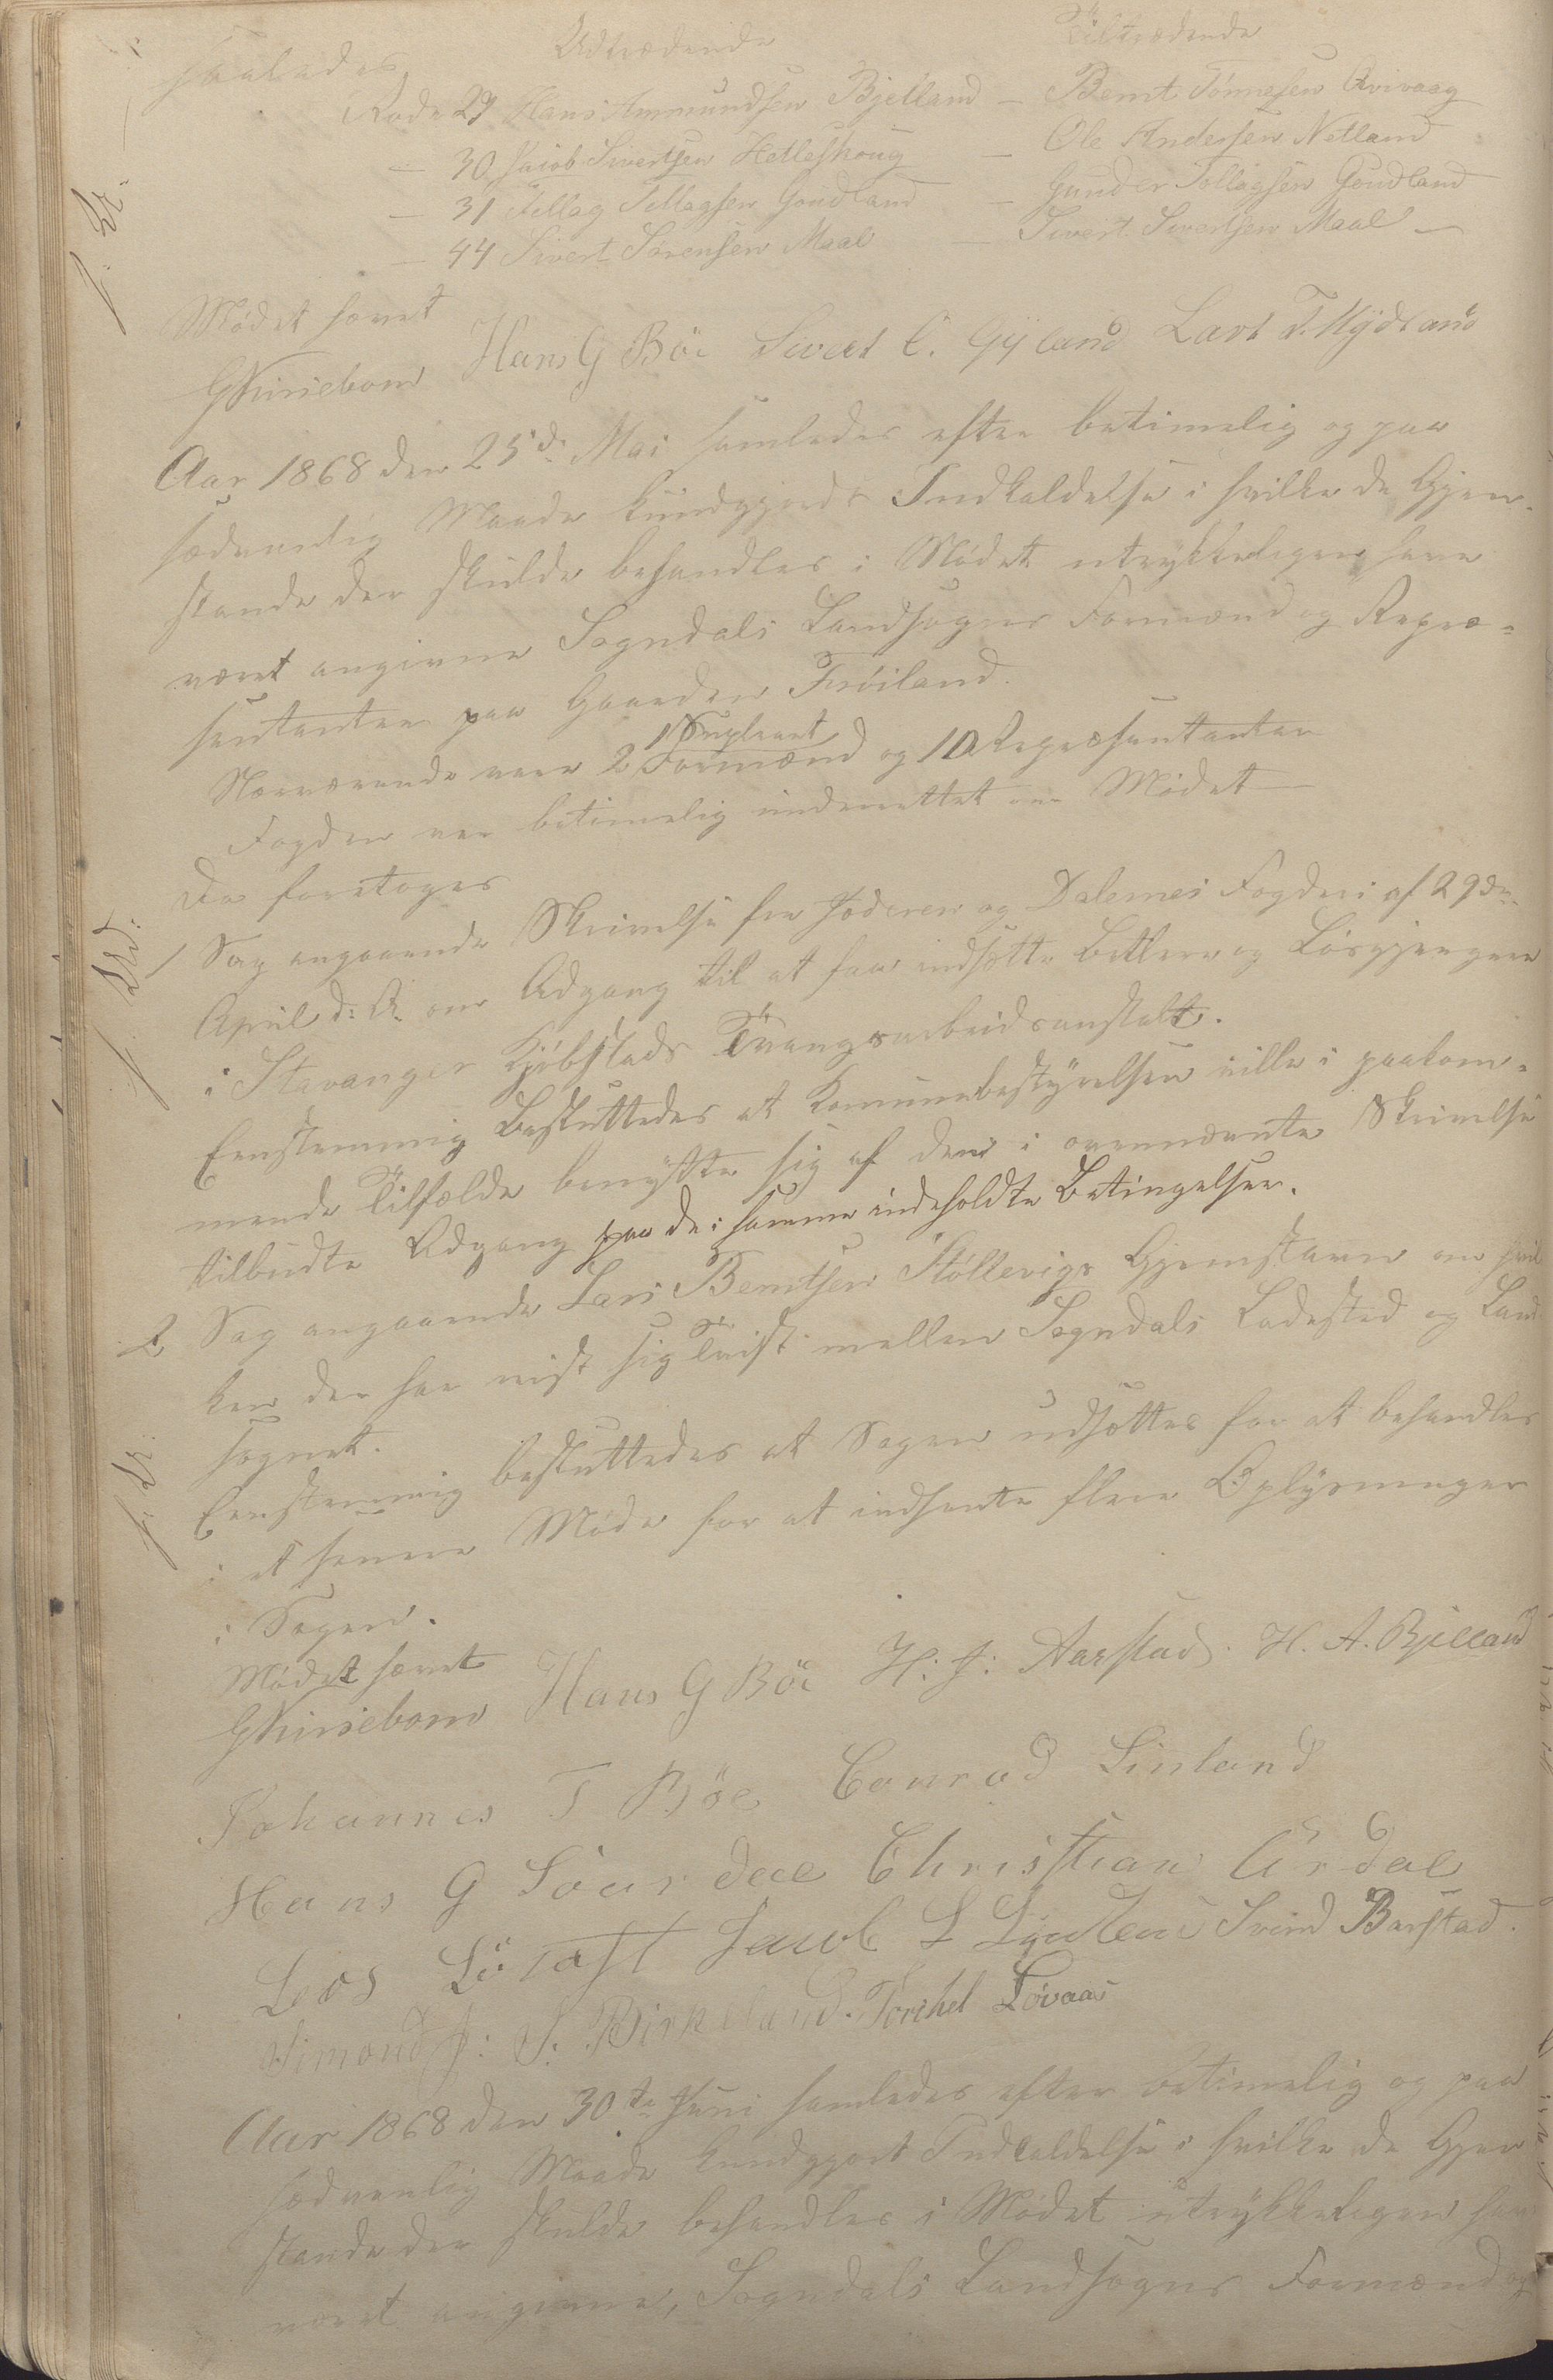 saaledes
Udtrædende Tiltrædende
Rode 29 Hans Ammundsen Bjelland – Bernt Tønnesen Qvivaag
– 30 Jacob Sivertsen Hetleskoug – Ole Andersen Netland
– 31 Tollag Tollagsen Goudland – Gunder Tollagsen Goudland
– 44 Sivert Sørensen Maal – Sivert Sivertsen Maal –
Mødet hævet
GKirsebom Hans G Böe Sivert C. Gyland Lars T. Mydland
Aar 1868 den 25de Mai samledes efter betimelig og paa
sædvanlig Maade kundgjords Indkaldelse i hvilke de Gjen-
stande der skulde behandles i Mødet utrykkeligen have
været angivne Sogndals Landsogns Formænd og Repræ-
sentanter paa Gaarden Frøiland.
Nærværende vare 2 Formænd 1 Supleant og 10 Repræsentanter
Fogden var betimelig underrettet om Mødet –
Da foretoges
1 Sag angaaende Skrivelse fra Jæderen og Dalernes Fogderi af 29de
April d: A. om Adgang til at faa indsætte Betlere og Løsgjengere
i Stavanger Kjøbstads Tvangsarbeidsanstalt.
Eenstemmig Besluttedes at Komunebestyrelsen ville i paakom-
mende Tilfælde benytte sig af den i ovennævnte Skrivelse
tilbudte Adgang paa de i samme indeholdte Betingelser.
2 Sag angaaende Lars Berntsen Støllevigs Gjemstavn om hvil
ken der har reist sig Tvist mellem Sogndals Ladested og Land
sognet.
Eenstemmig besluttedes at Sagen udsættes for at behandles
i et senere Møde for at indhente flere Oplysninger
i Sagen.
Mødet hævet
GKirsebom Hans G Böe H: J: Aarstad. H. A. Bjelland
Johannes T Böe Conrad Linland
Hans G Christian Årdal
Jacob L Svend Barstad.
Simond J: S. Birkeland. Torkel Lovaas
Aar 1868 den 30te Juni samledes efter betimelig og paa
sædvanlig Maade kundgjort Indkaldelse i hvilke de Gjen
stande der skulde behandles i Mødet utrykkeligen hav
været angivne, Sogndals Landsogns Formænd og